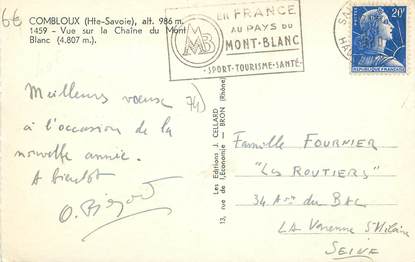 6€
COMBLOUX (Hte-Savoie), alt. 986 m.
1459 - Vue sur la Chaîne du Mont
Blanc (4.807 m.).
EN FRANCE
AU PAYS DU
MONT-BLANC
SPORT-TOURISME-SANTÉ
MB
20F
74)
Meilleurs voeux
à l'occasion de la
nouvelle année.
A bientôt
Les Editions J. CELLARD
13, rue de l'Économie - BRON (Rhône)
Famille FOURNIER
"Les ROUTIERS"
34 Av. du BAC
LA Varenne St Hilaire
SEINE